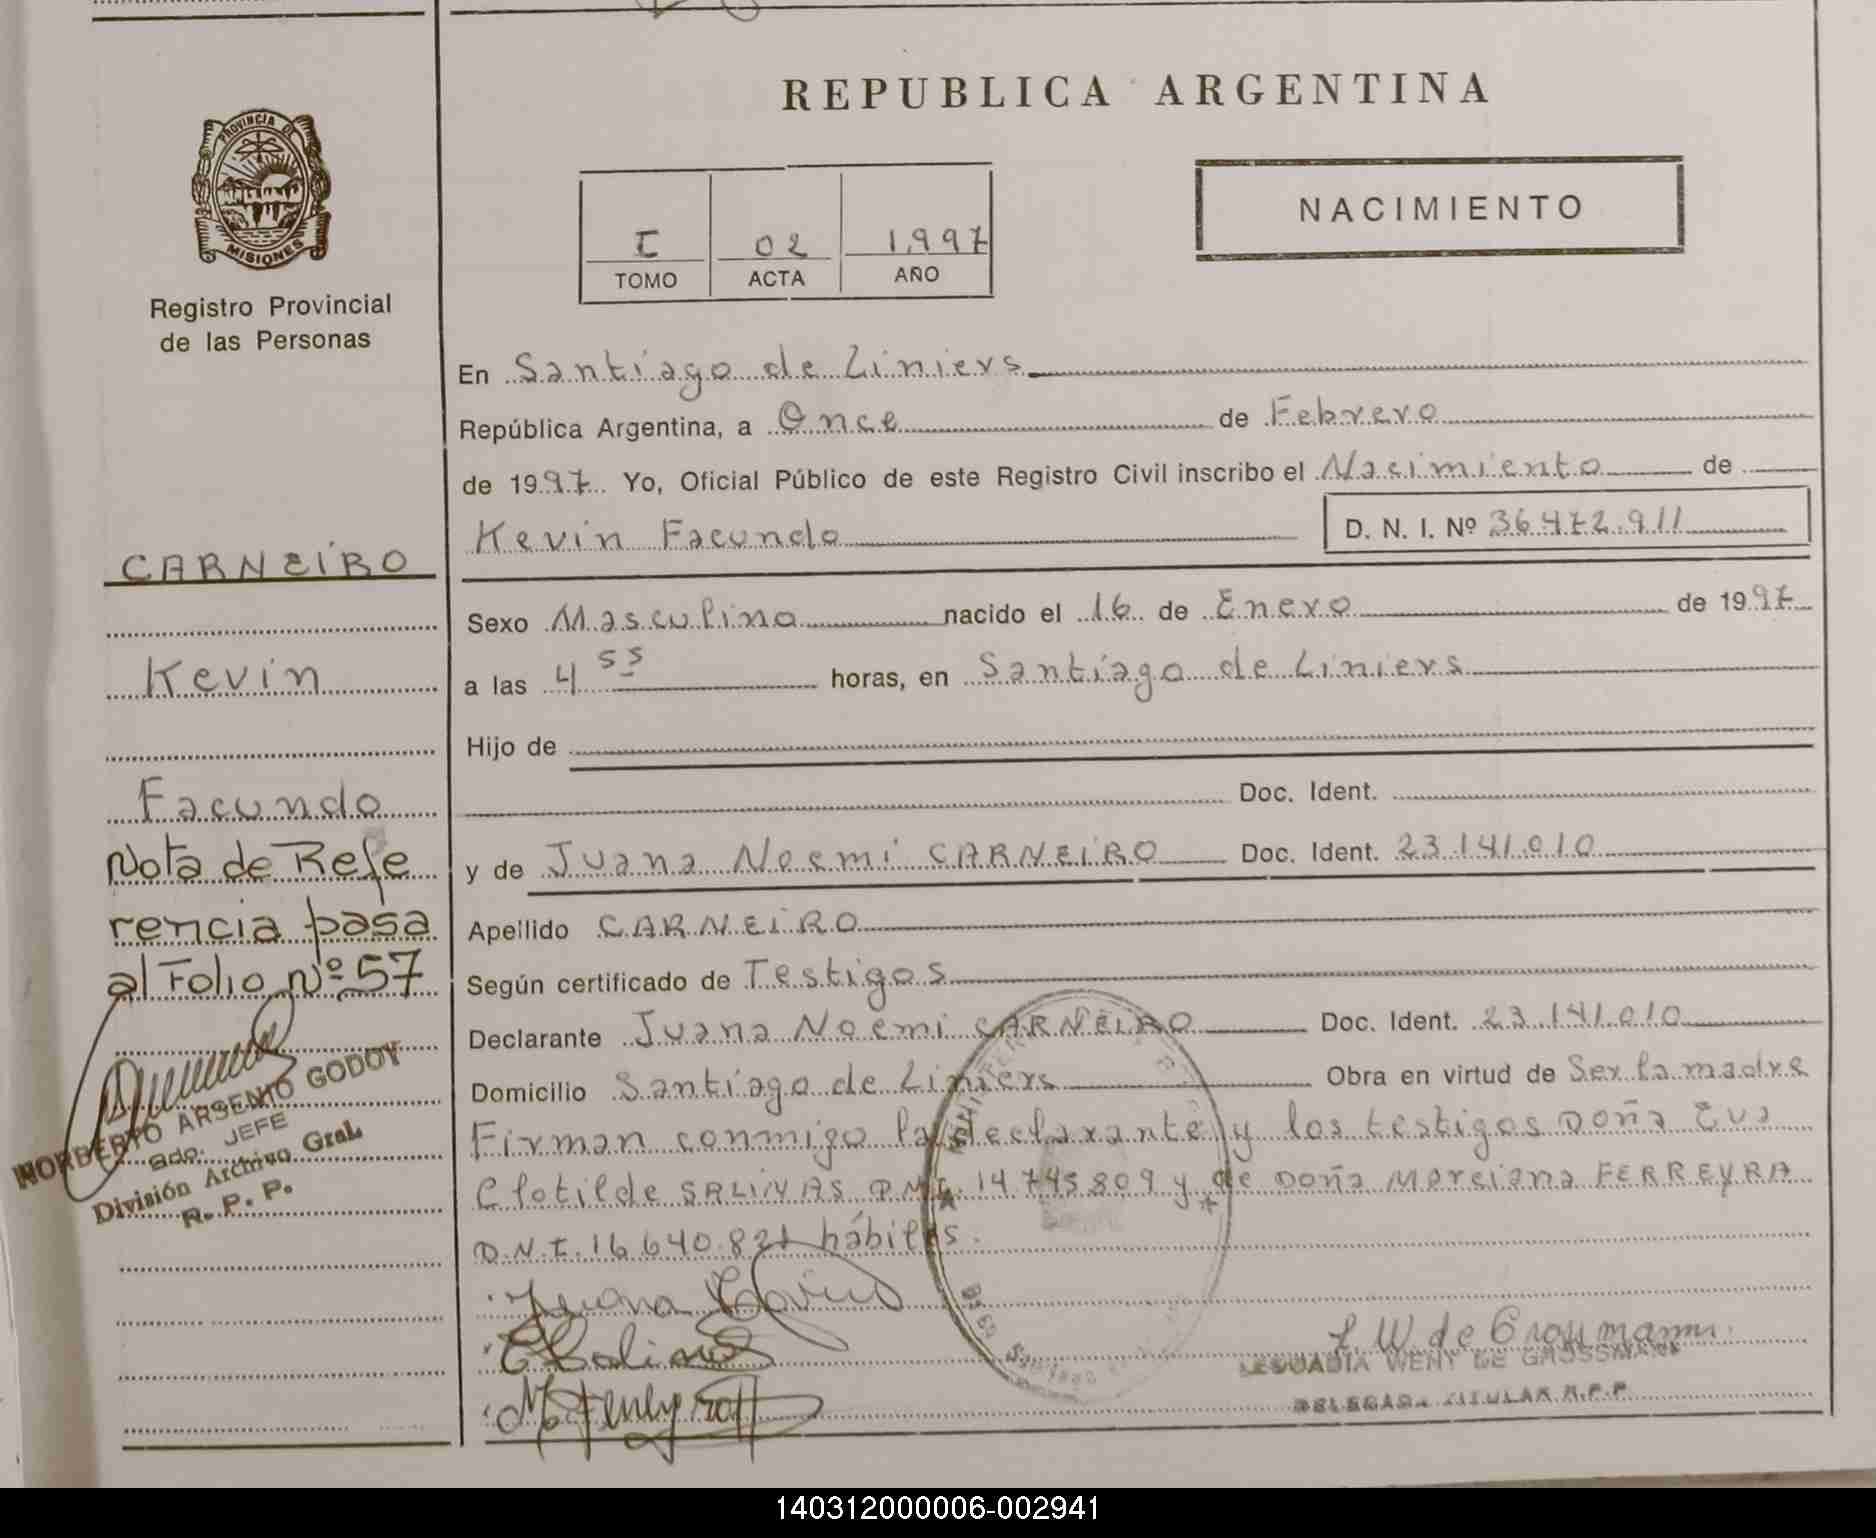 REPUBLICA ARGENTINA
PROVINCIA DE
MISIONES
Registro Provincial
de las Personas
NACIMIENTO
I 02 1.997
TOMO ACTA AÑO
En Santiago de Liniers
República Argentina, a Once de Febrero
de 1997 Yo, Oficial Público de este Registro Civil inscribo el Nacimiento de
Kevin Facundo D. N. I. Nº 36.472.911
Sexo Masculino nacido el 16 de Enero de 1997
a las 4 55 horas, en Santiago de Liniers
Hijo de
Doc. Ident.
y de Juana Noemi CARNEIRO Doc. Ident. 23.141.010
Apellido CARNEIRO
Según certificado de Testigos
Declarante Juana Noemi CARNEIRO Doc. Ident. 23.141.010
Domicilio Santiago de Liniers Obra en virtud de Ser la madre
Firman conmigo la declarante y los testigos Doña Eva
Clotilde SALINAS D.N.I. 14.745.809 y de Doña Marciana FERREYRA
D.N.I. 16.640.821 hábiles.
CARNEIRO
Kevin
Facundo
Nota de Refe
rencia pasa
al Folio Nº 57
NORBERTO ARSENIO GODOY
JEFE
División Archivo Gral.
R. P. P.
Juana
L W de Grossmann
WENY DE GROSSMANN
DELEGADA TITULAR R.P.P.
140312000006-002941